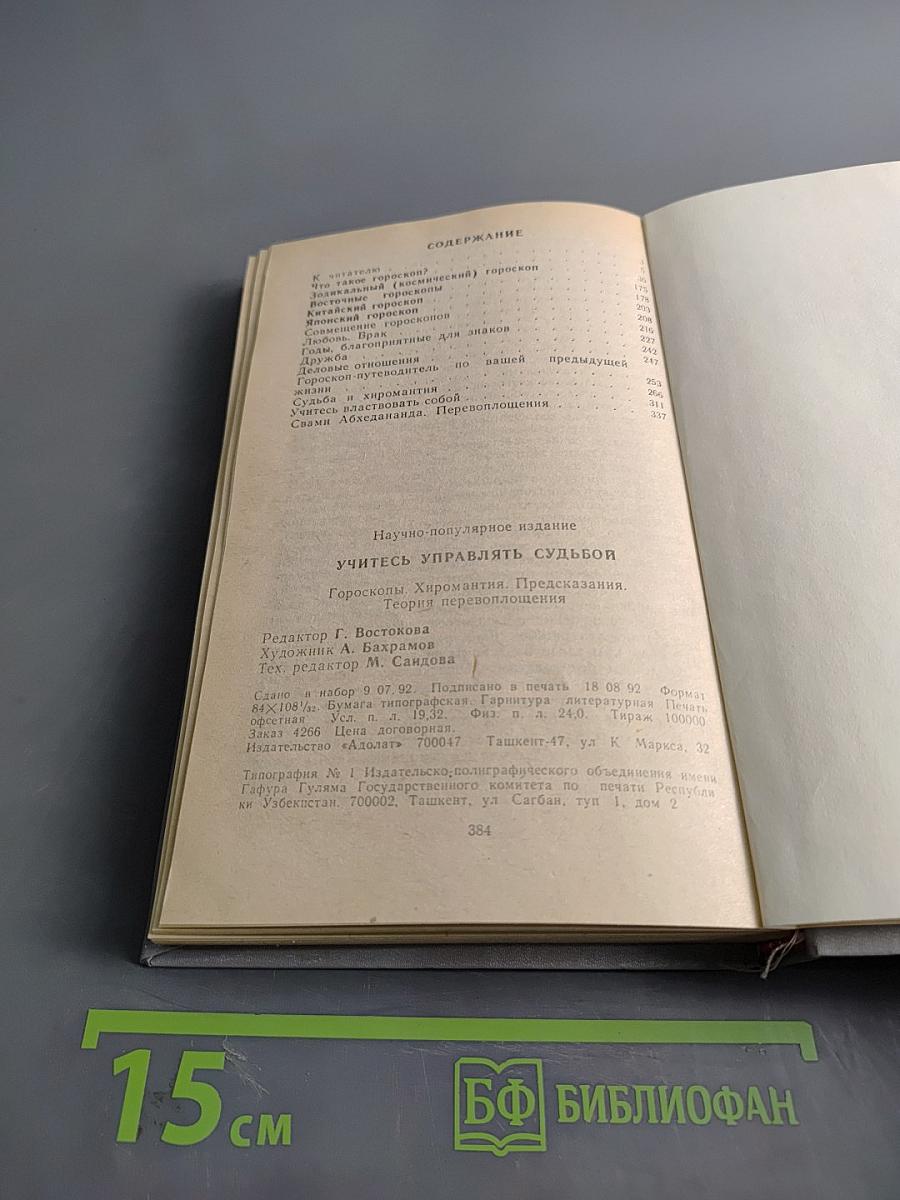 СОДЕРЖАНИЕ
К читателю . . . 3
Что такое гороскоп? . . . 5
Зодикальный (космический) гороскоп . . . 36
Восточные гороскопы . . . 175
Китайский гороскоп . . . 178
Японский гороскоп . . . 203
Совмещение гороскопов . . . 208
Любовь. Брак . . . 216
Годы, благоприятные для знаков . . . 227
Дружба . . . 242
Деловые отношения . . . 247
Гороскоп-путеводитель по вашей предыдущей
жизни . . . 253
Судьба и хиромантия . . . 266
Учитесь властвовать собой . . . 311
Свами Абхедананда. Перевоплощения . . . 337
Научно-популярное издание
УЧИТЕСЬ УПРАВЛЯТЬ СУДЬБОЙ
Гороскопы. Хиромантия. Предсказания.
Теория перевоплощения
Редактор Г. Востокова
Художник А. Бахрамов
Тех. редактор М. Саидова
Сдано в набор 9 07.92. Подписано в печать 18 08 92 Формат
84×108 1/32. Бумага типографская. Гарнитура литературная Печать
офсетная Усл. п. л. 19,32. Физ. п. л. 24,0. Тираж 100000
Заказ 4266 Цена договорная.
Издательство «Адолат» 700047 Ташкент-47, ул К Маркса, 32
Типография № 1 Издательско-полиграфического объединения имени
Гафура Гуляма Государственного комитета по печати Республи
ки Узбекистан. 700002, Ташкент, ул Сагбан, туп 1, дом 2
384
15 см
БФ БИБЛИОФАН